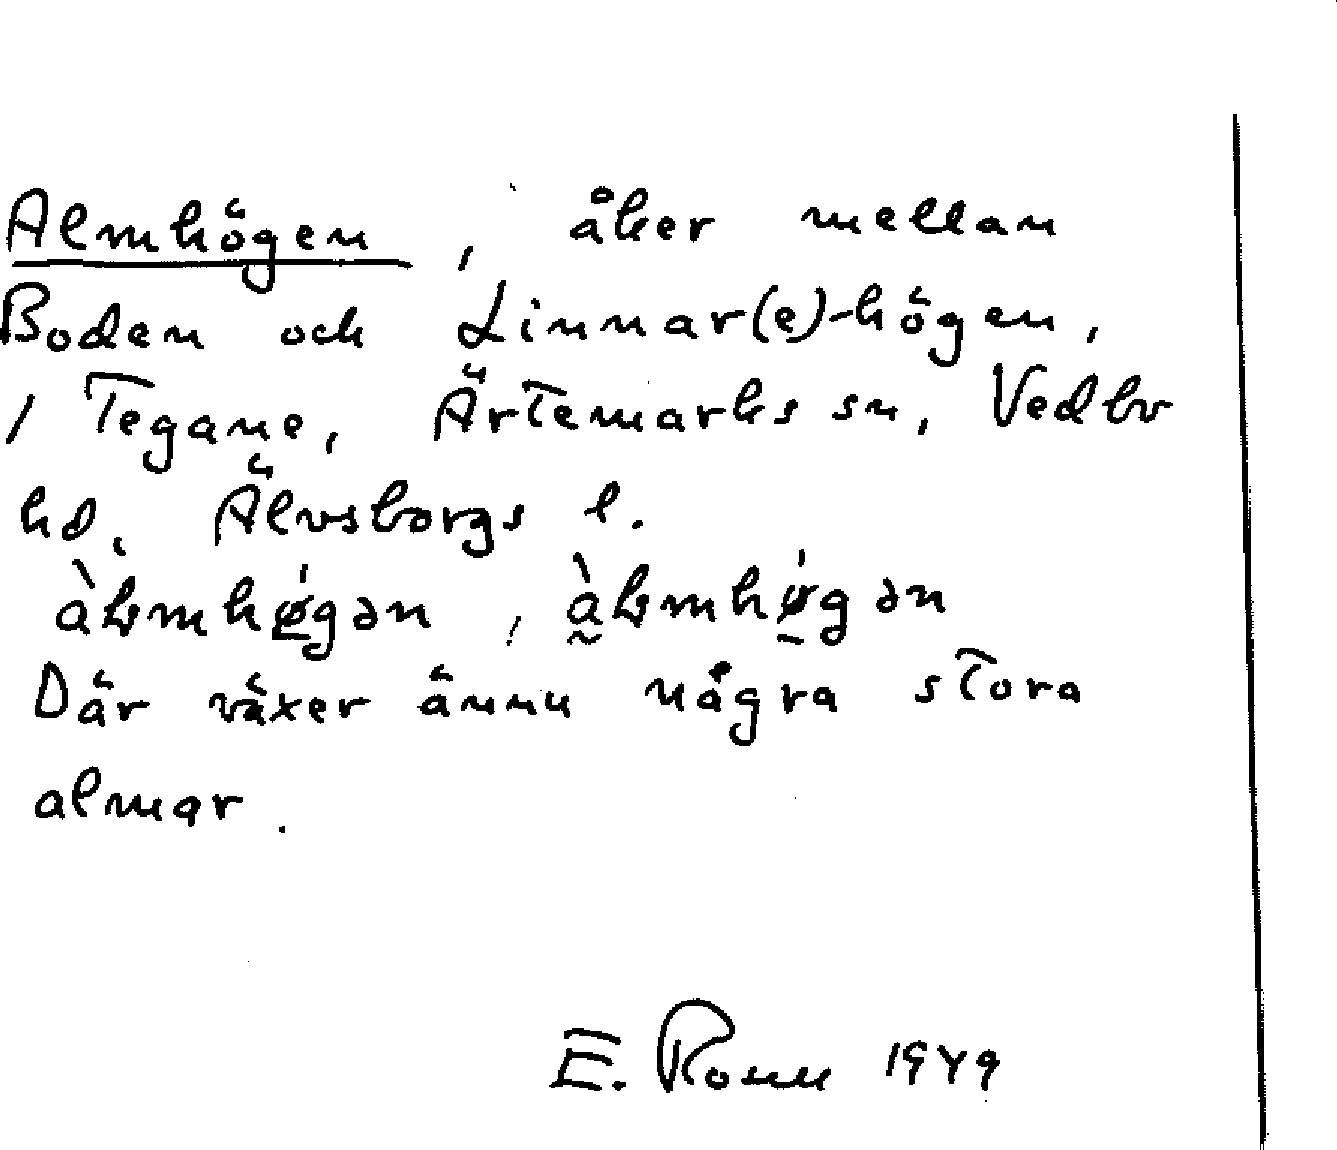 Almhögen, åker mellan
Boden och Linnar(e)-högen,
i Tegane, Ärtemarks sn, Vedbo
hd, Älvsborgs l.
Där växer ännu några stora
almar.
E. Ronn 1949